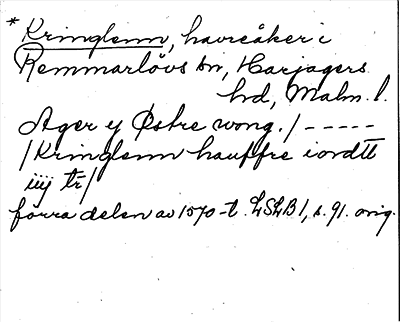 * Kringlenn, havreåker i
Remmarlövs sn, Harjagers
hd, Malm. l.
Ager y Østre wong. / - - - - -
/ Kringlenn hauffre iordtt
iiij tr /
förra delen av 1570-t. LSLB 1, s. 91. orig.